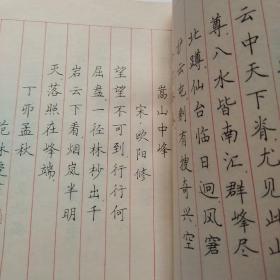 云中天下脊尤见此
尊八水皆南汇群峰尽
北蹲仙台临日迥风窘
云包剩有搜奇兴空
嵩山中峰
宋·欧阳修
望望不可到行行何
屈盘一径林杪出千
岩云下看烟岚半明
灭落照在峰端
丁卯孟秋